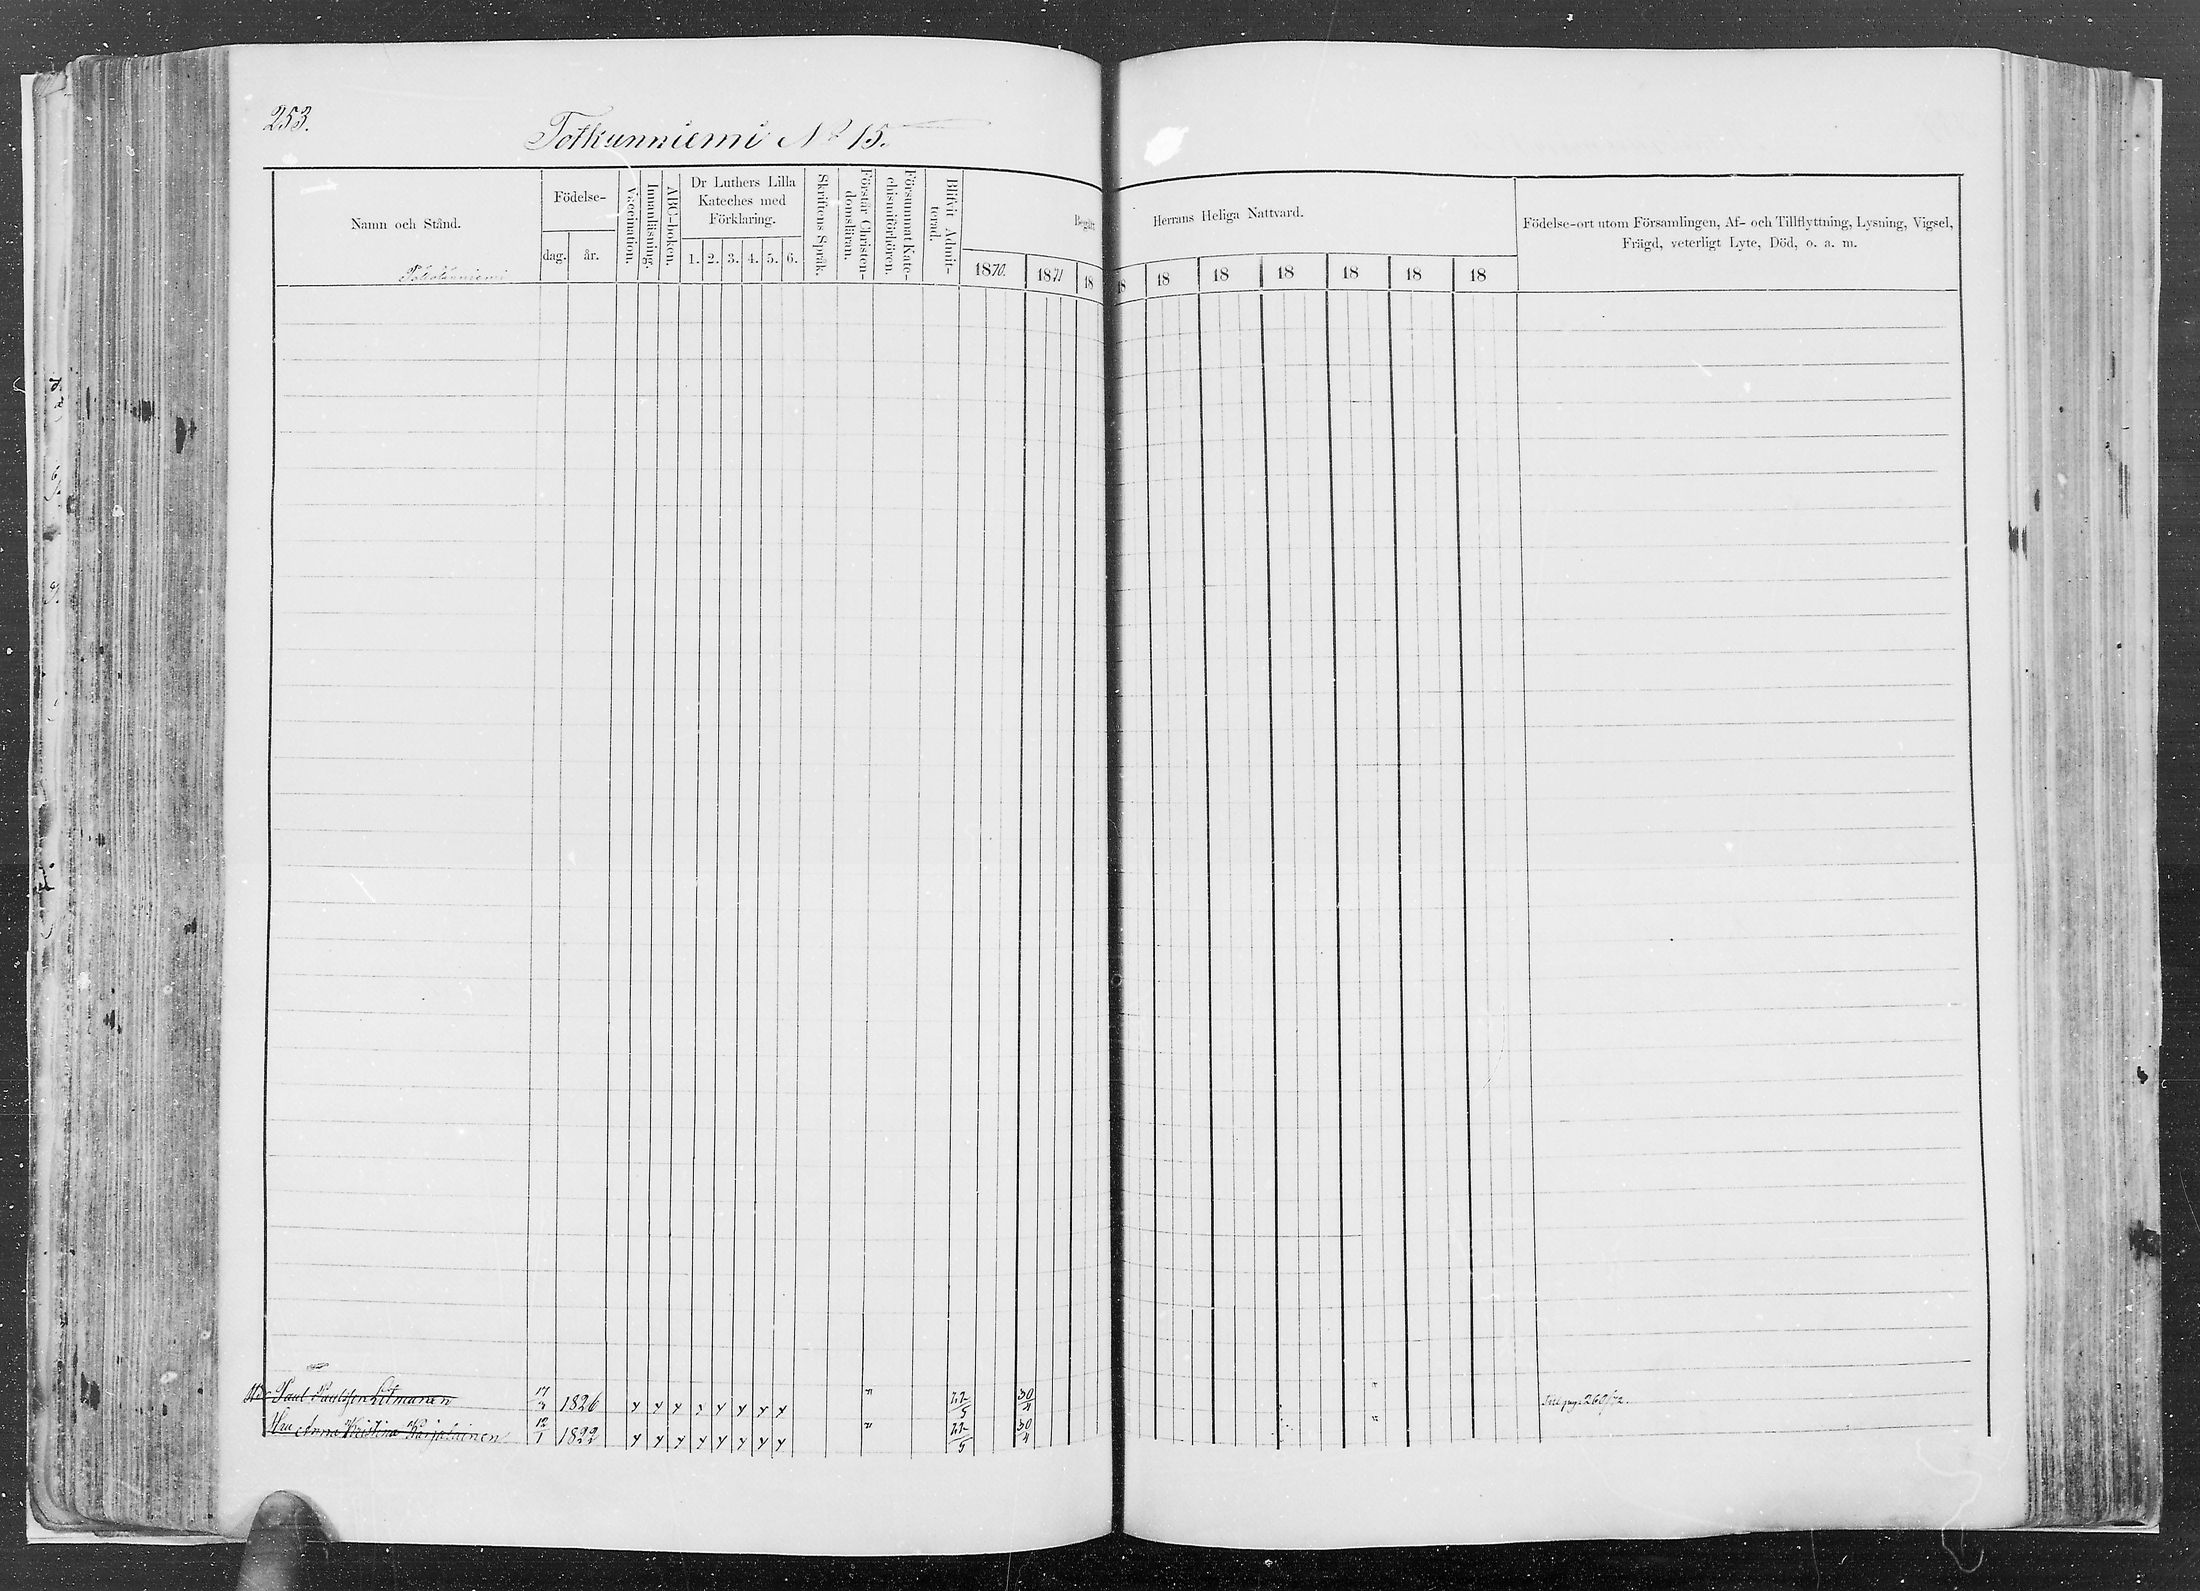 253.
Totkunniemi No 15.
Namn och Stånd.
Födelse-
dag. år.
Vaccination.
Innanläsning.
ABC-boken.
Dr Luthers Lilla
Kateches med
Förklaring.
1. 2. 3. 4. 5. 6.
Skriftens Språk.
Förstår Christen-
domsläran.
Försummat Kate-
chismiförhören.
Blifvit Admit-
terad.
Begått Herrans Heliga Nattvard.
1870. 1871 18 18 18 18 18 18 18 18
Födelse-ort utom Församlingen, Af- och Tillflyttning, Lysning, Vigsel,
Frägd, veterligt Lyte, Död, o. a. m.
Paul Paulsson 17/3 1826 y y y y y y y y " 22/5 30/4 " 260/72.
Hu Anna Kristina Karjalainen 12/1 1822 y y y y y y y y " 22/5 30/4 "